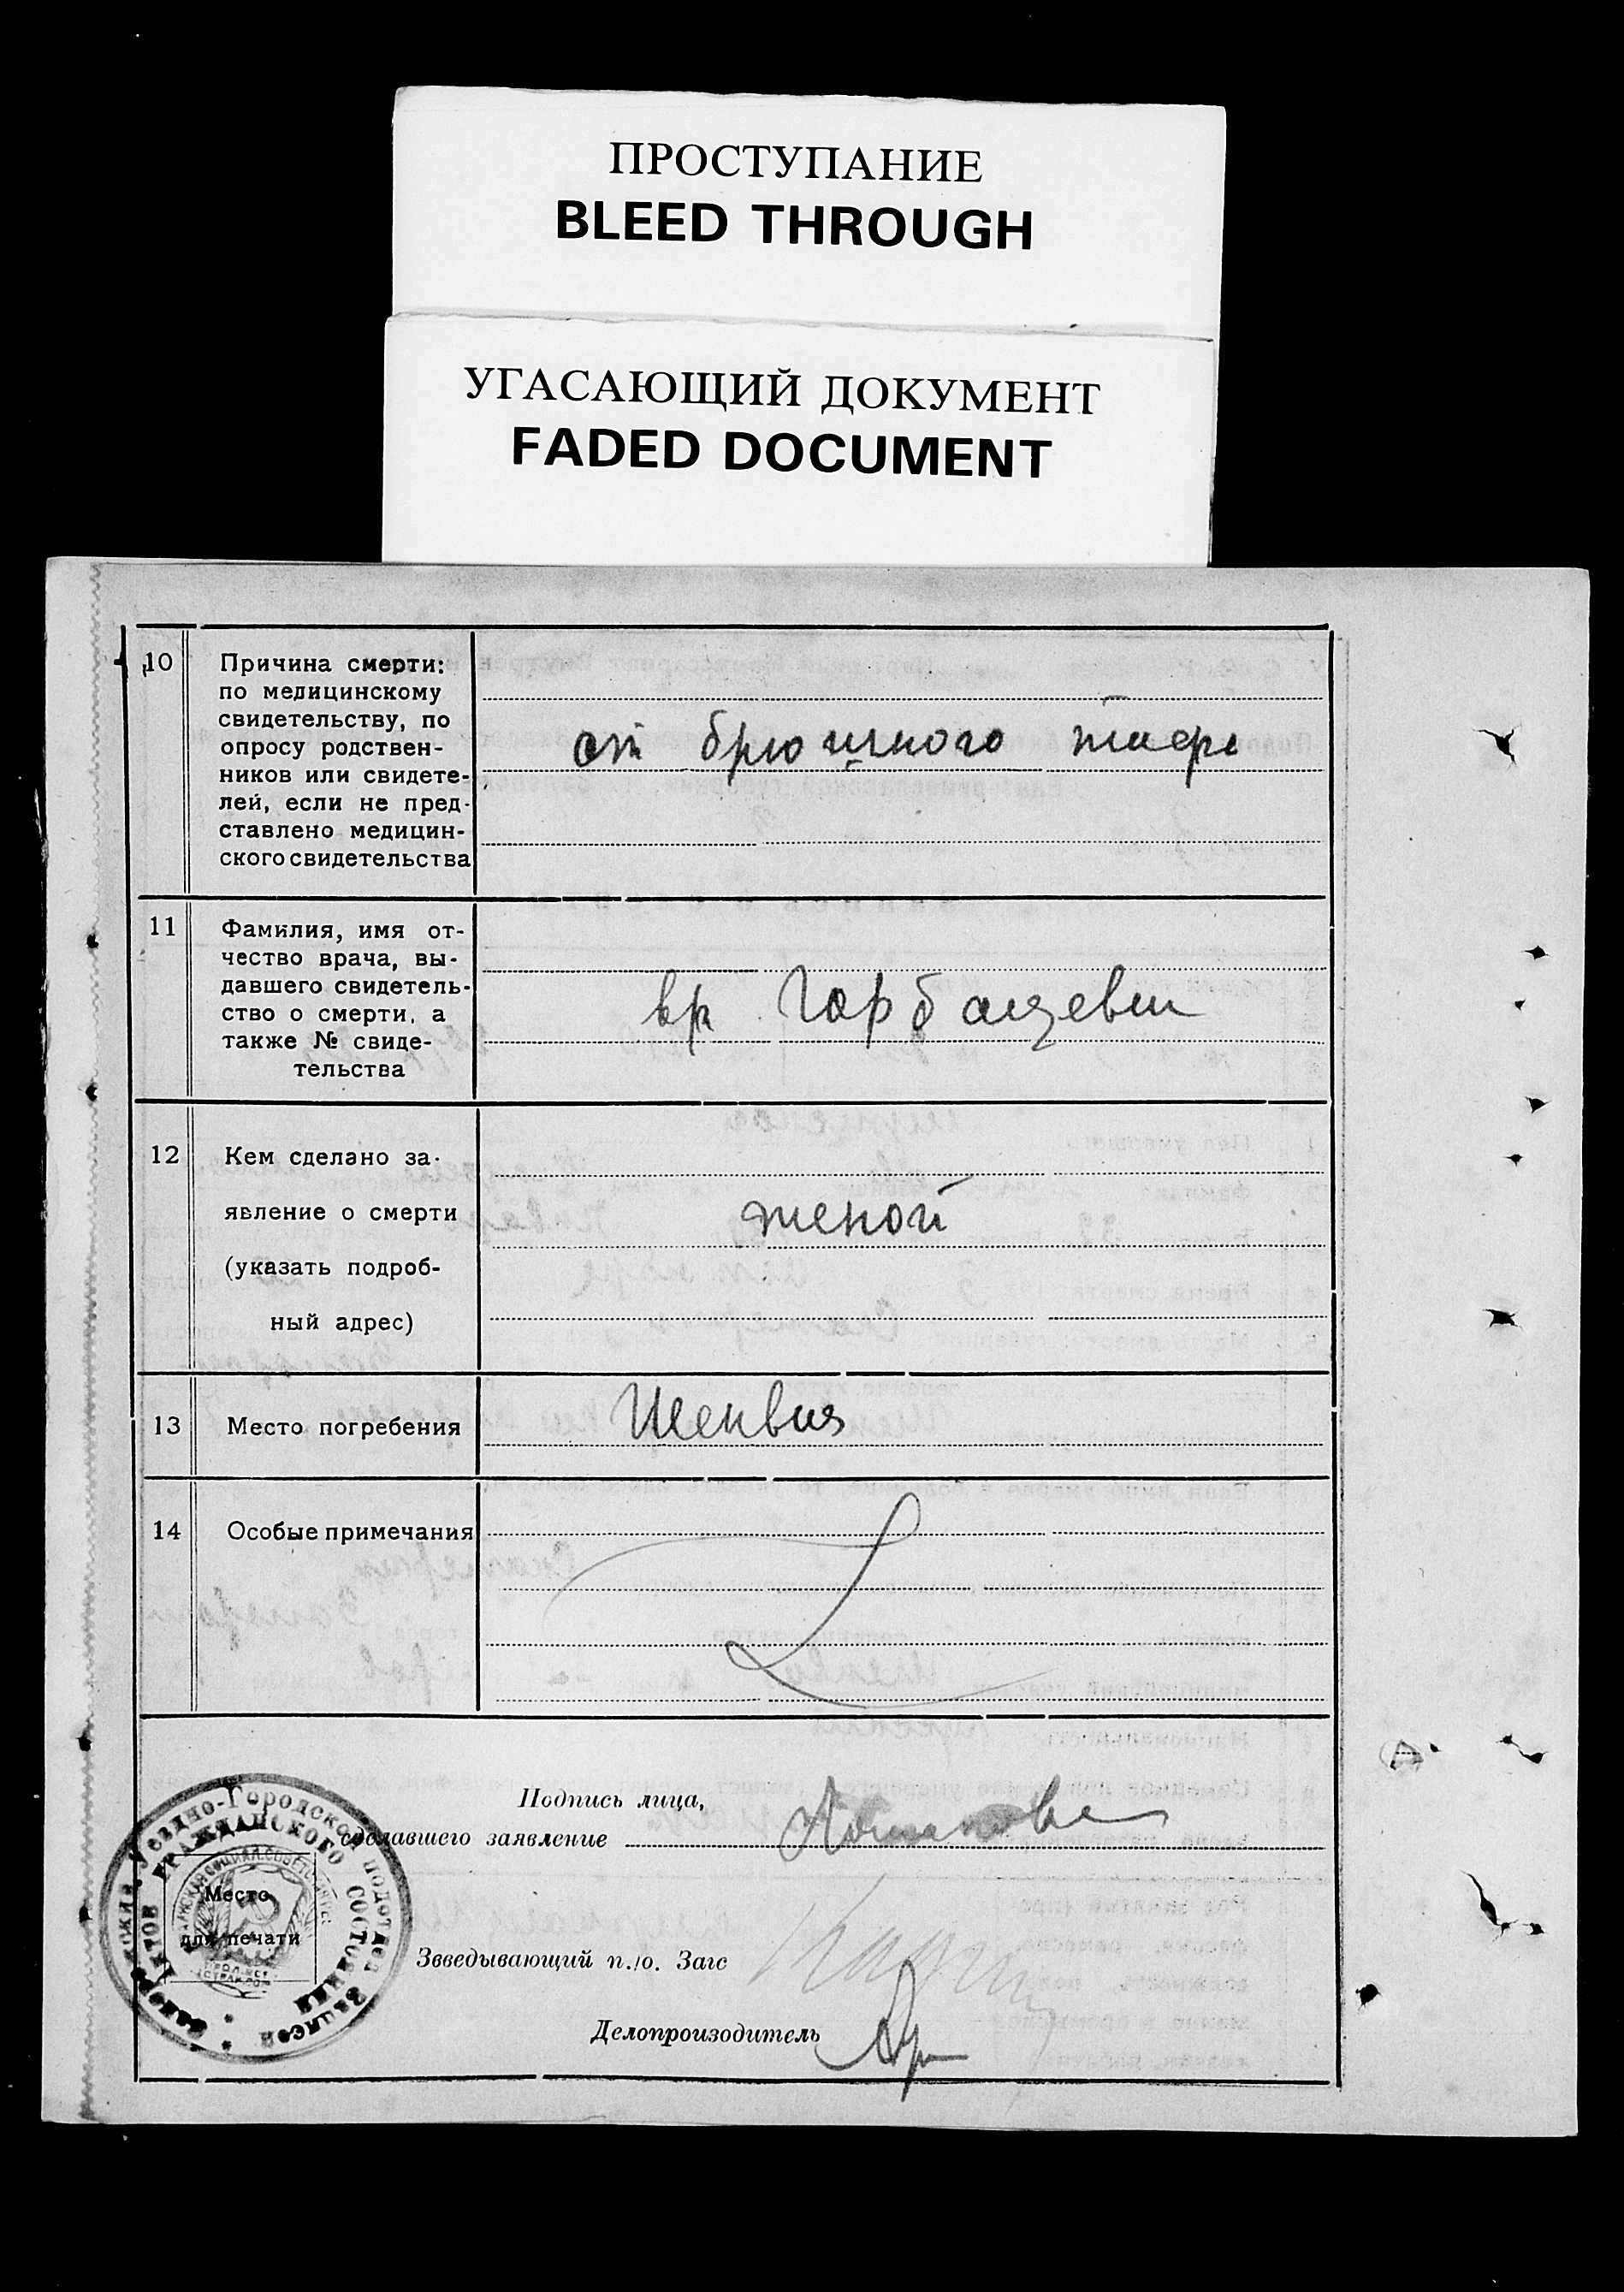 ПРОСТУПАНИЕ
BLEED THROUGH
УГАСАЮЩИЙ ДОКУМЕНТ
FADED DOCUMENT
10
Причина смерти:
по медицинскому
свидетельству, по
опросу родствен-
ников или свидете-
лей, если не пред-
ставлено медицин-
ского свидетельства
от брюшного тифа
11
Фамилия, имя от-
чество врача, вы-
давшего свидетель-
ство о смерти, а
также № свиде-
тельства
вр Горбацевич
12
Кем сделано за-
явление о смерти
(указать подроб-
ный адрес)
женой
13
Место погребения
14
Особые примечания
Подпись лица,
сделавшего заявление
Место
для печати
Уездно-Городской подотдел Записей
Актов ГРАЖДАНСКОГО СОСТОЯНИЯ
Зведывающий п./о. Загс
Делопроизводитель